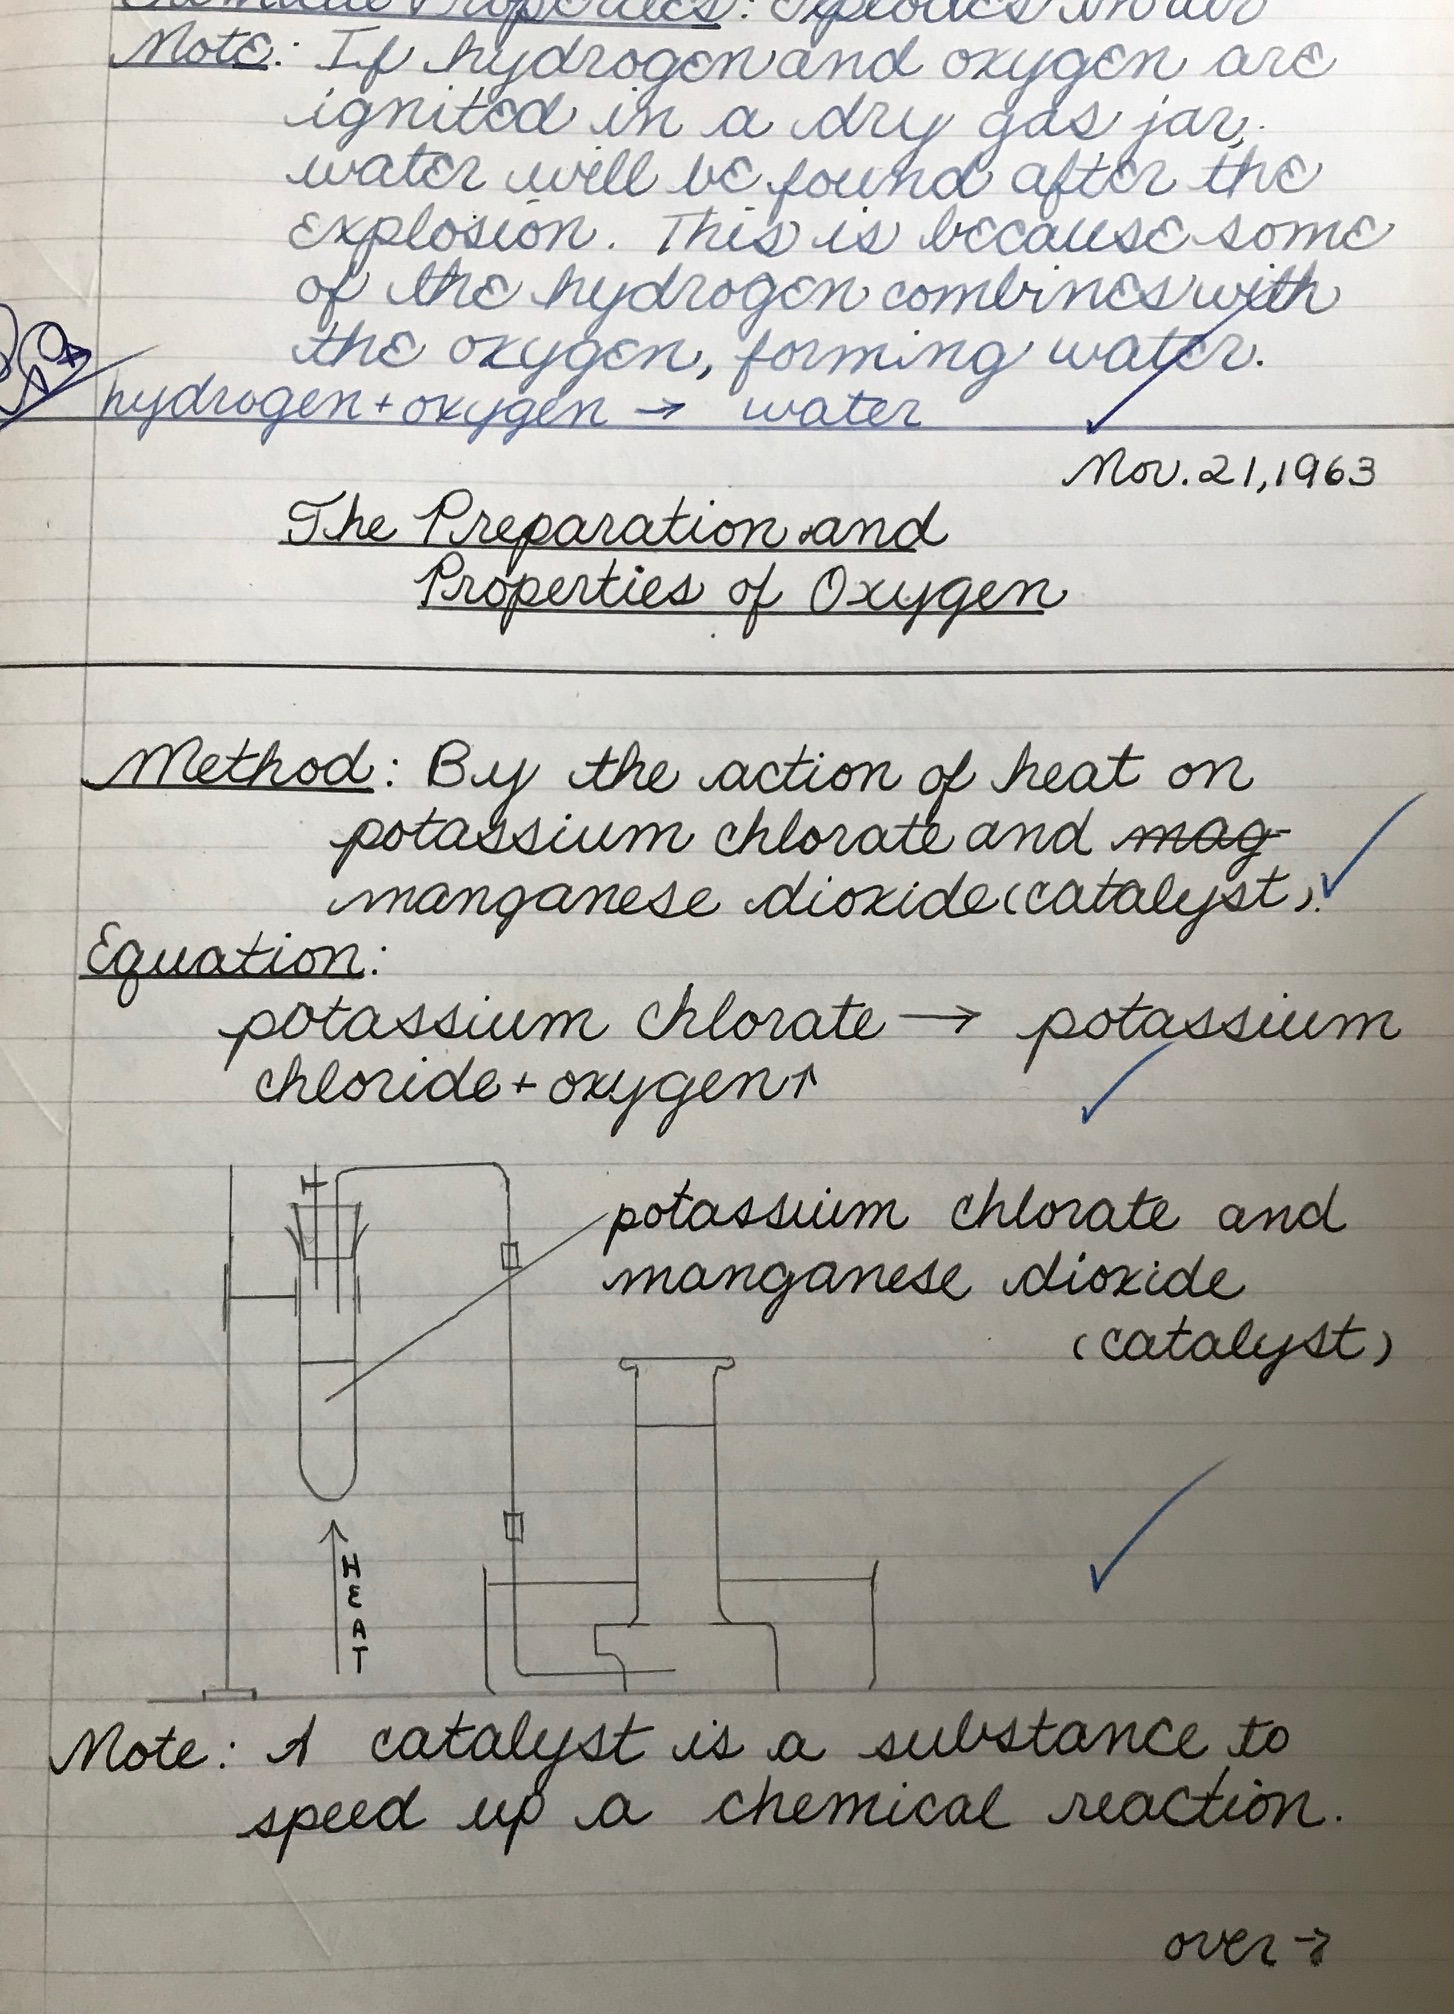 Chemical Properties: Explodes in air
Note: If hydrogen and oxygen are
ignited in a dry gas jar,
water will be found after the
explosion. This is because some
of the hydrogen combines with
the oxygen, forming water.
hydrogen + oxygen → water
Nov. 21, 1963
The Preparation and
Properties of Oxygen
Method: By the action of heat on
potassium chlorate and mag-
manganese dioxide (catalyst).
Equation:
potassium chlorate → potassium
chloride + oxygen↑
potassium chlorate and
manganese dioxide
(catalyst)
HEAT
Note: A catalyst is a substance to
speed up a chemical reaction.
over →